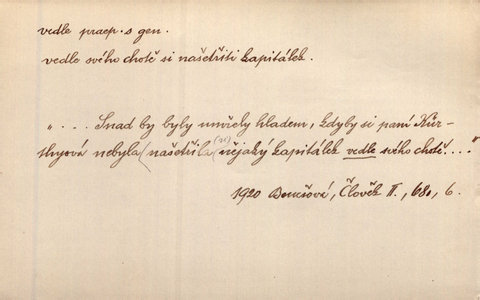 vedle praep. s gen.
vedle svého chotě si našetřiti kapitálek.
". . . . Snad by byly umřely hladem, kdyby si paní Kür-
thyová nebyla (našetřila (si) nějaký kapitálek vedle svého chotě. . . ."
1920 Benešová, Člověk II., 68, 6.